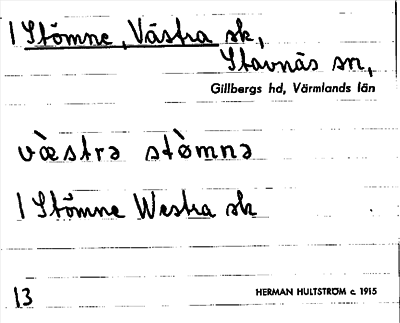 1 Stömne, Västra sk,
Stavnäs sn,
Gillbergs hd, Värmlands län
væ̀strə stömnə
1 Stömne Westra sk
13 HERMAN HULTSTRÖM c. 1915